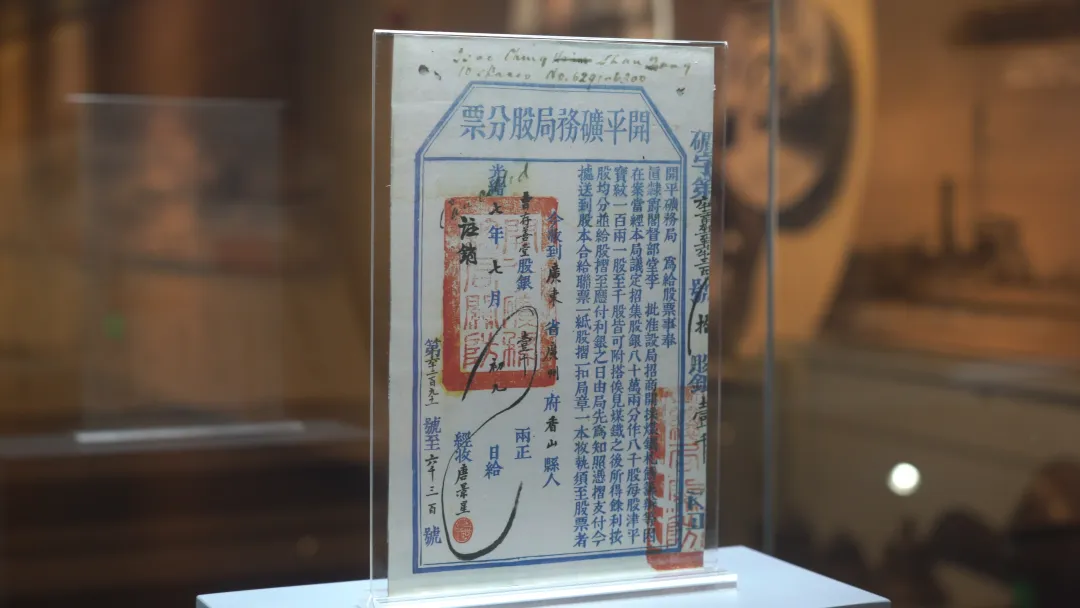 10 shares No. 6291-6300
開平礦務局股分票
礦字第
號
拾
股銀壹千
開平礦務局 為給股票事奉
直隸爵閣督部堂李 批准設局招商開採
在案當經本局議定招集股銀八十萬兩分作八千股每股津平
寶紋一百兩一股至千股皆可附搭俟見煤鐵之後所得餘利按
股均分並給股摺至應付利銀之日由局先為知照憑摺支付今
據送到股本合給聯票一紙股摺一扣局章一本收執須至股票者
今收到廣東省廣州府香山縣人
存善堂股銀壹千兩正
光緒七年七月初九日給
註銷
經收唐景星
第六千二百九十一號至六千三百號